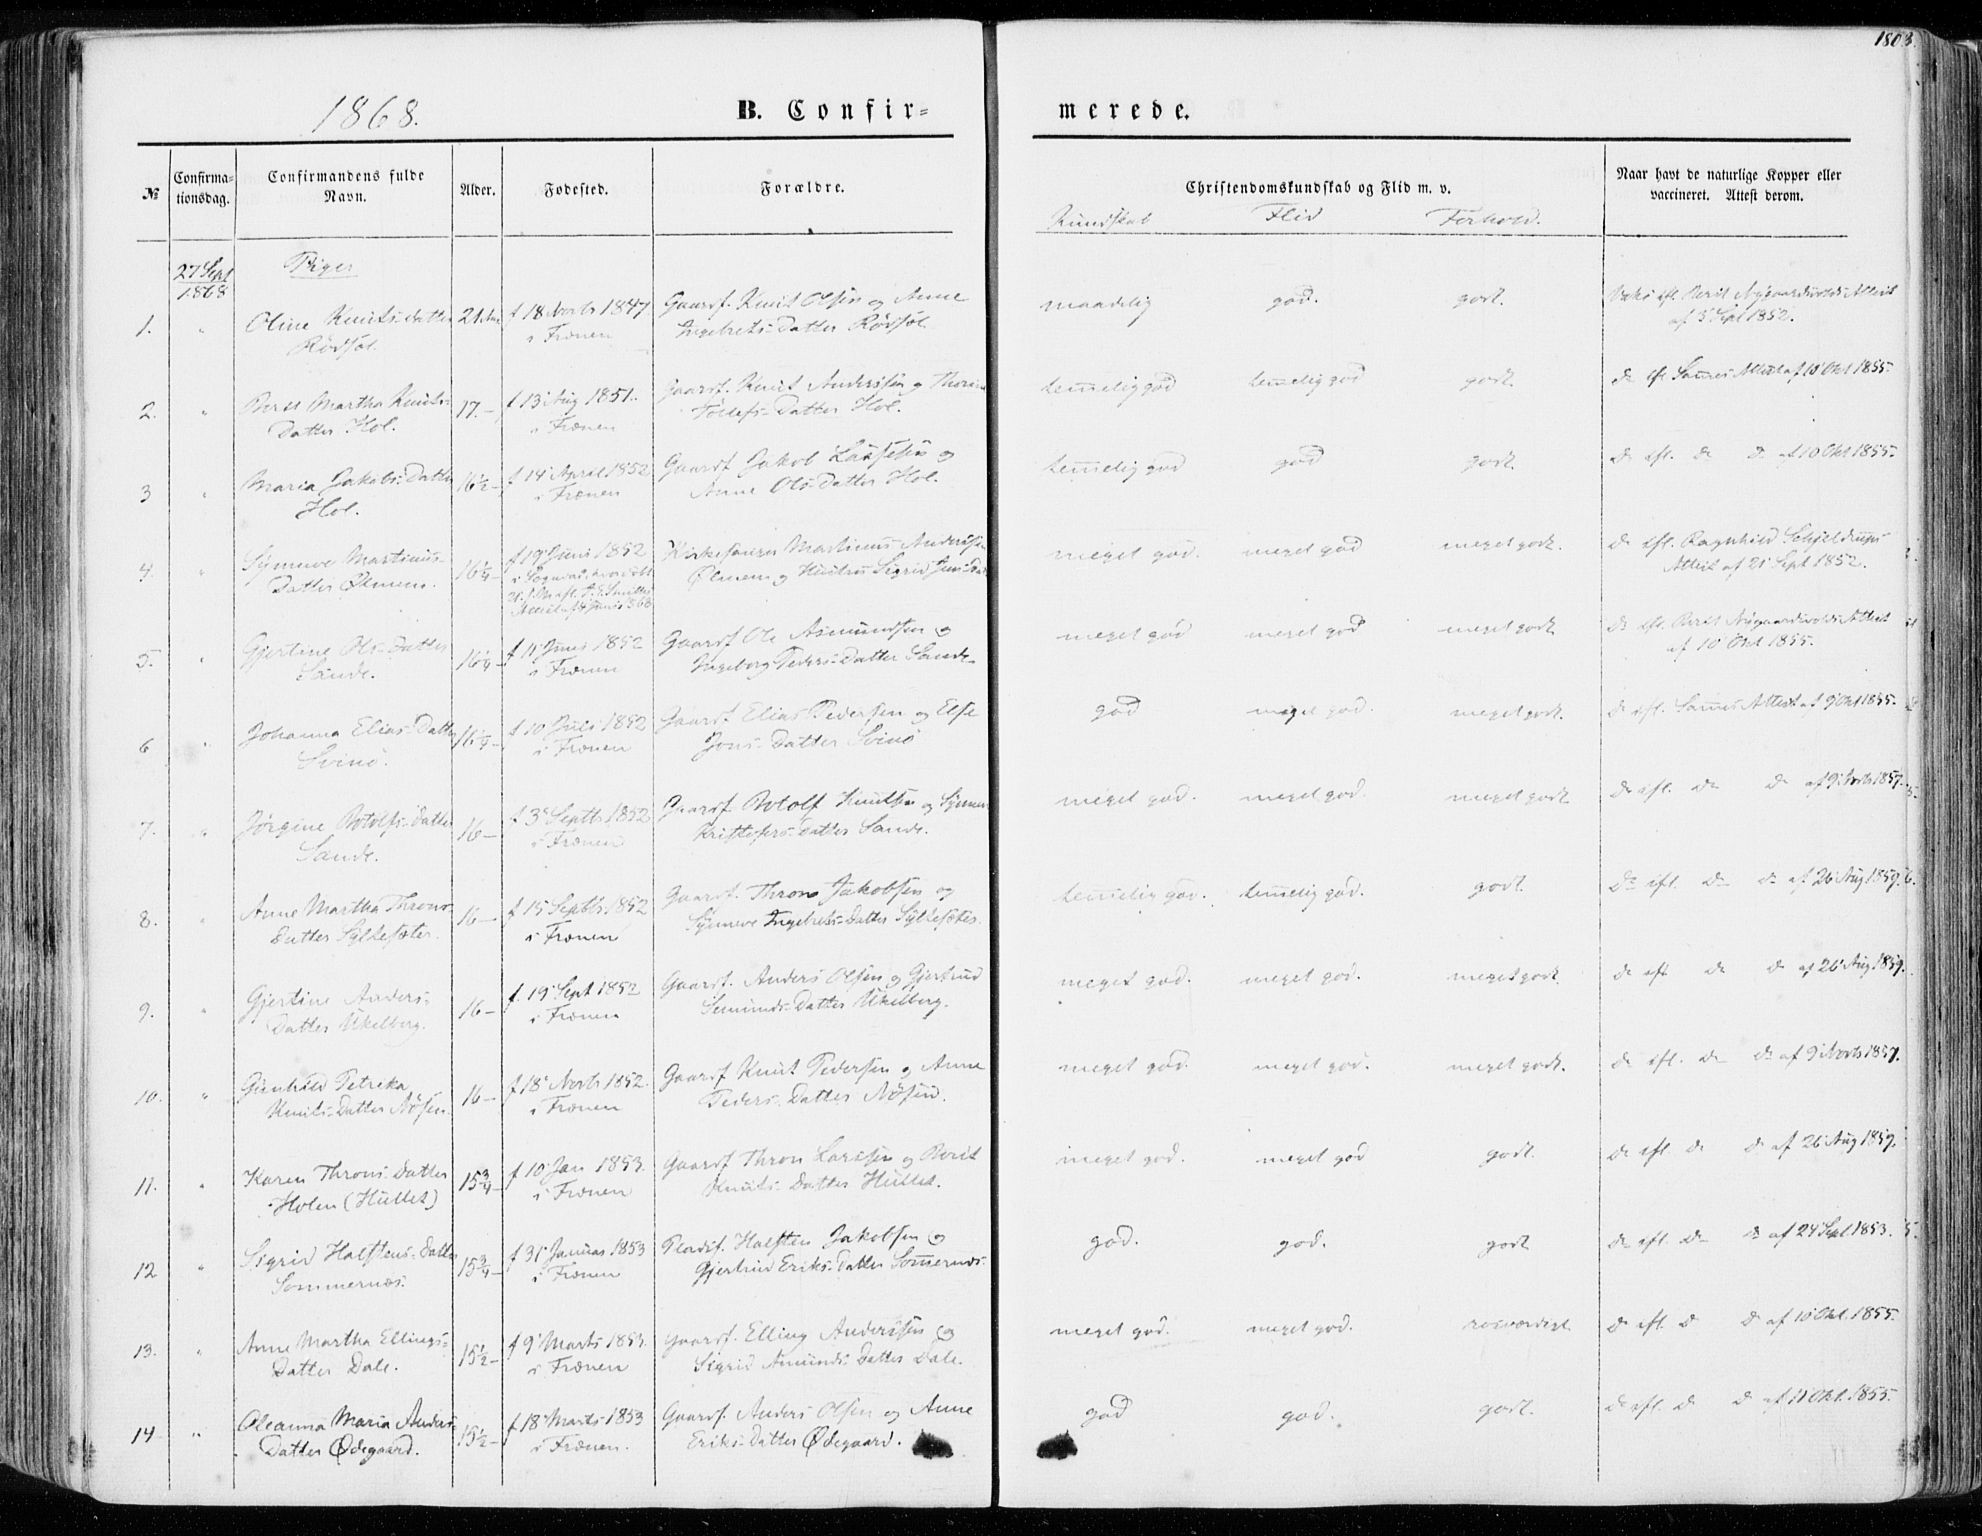 1803.
1868.
B. Confir-
merede.
№
Confirma-
tionsdag.
Confirmandens fulde
Navn.
Alder.
Fødested.
Forældre.
Christendomskundskab og Flid m. v.
Kundskab
Flid
Forhold.
Naar havt de naturlige Kopper eller
vaccineret. Attest derom.
27 Sept
1868
Piger
1.
"
Oline Knuts-datter
Rødsøl.
21
f 18 Novb 1847
i Frænen
Gaardf. Knut Olsen og Anne
Ingebrets-Datter Rødsøl.
maadelig
god.
godt.
af 3 Sept 1852.
2.
"
Berit Martha Knuts-
Datter Hol.
17.-
f 13 Aug 1851.
i Frænen
Gaardf. Knut Anderssen og
Tollefs-Datter Hol.
temelig god
temelig god
godt.
do efl. Samme Attest af 10 Okt 1855.
3
"
Maria Jakobs-Datter
Hol.
16½-
f 14 April 1852
i Frænen
Gaardf Jakob Lassesen og
Anne Ols-Datter Hol.
temelig god
god
godt.
do efl. do do af 10 Okt 1855.
4.
"
Synneve Martinus-
Datter Ølmem.
16¼-
f 19 Juni 1852
Kirkesanger Martinus Anderssen
og Hustru Sigrid
meget god.
meget god
meget godt.
do efl. Ragnhild Schjeldrups
Attest af 21 Sept 1852.
5.
"
Gjertine Ols-Datter
Sande.
16¼-
f 11 Juni 1852
i Frænen
Gaardf Ole Asmundsen og
Ingeborg Peders-Datter Sande.
meget god
meget god
meget godt
af 10 Okt 1855.
6
"
Johanna Elias-Datter
Svinø.
16¼-
f 10 Juli 1852
i Frænen
Gaardf. Elias Pedersen og Else
Jons-Datter Svinø
god
meget god.
meget godt.
do efl. Samme Attest af 9 Okt 1855.
7.
"
Jørgine Botolfs-datter
Sande.
16-
f 3 Septb 1852
i Frænen
Gaardf. Botolf Knutsen og
Kristofers-datter Sande.
meget god.
meget god.
meget godt
do efl. do do af 9 Novb 1857.
8.
"
Anne Martha Throns-
Datter Sylteseter.
16-
f 15 Septb 1852
i Frænen
Gaardf. Thron Jakobsen og
Synneve Ingebrets-datter Sylteseter.
temelig god.
temelig god.
godt.
do efl. do do af 26 Aug 1859.
9.
"
Gjertine Anders-
Datter Ukelberg.
16-
f. 19 Sept 1852
i Frænen
Gaardf. Anders Olsen og Gjertrud
Semunds-Datter Ukelberg.
meget god.
meget god.
meget godt.
do efl do do af 26 Aug 1859.
10.
"
Gunhild Petrika
Knuts-Datter Nøsen
16-
f 18 Novb 1852.
i Frænen
Gaardf Knut Pedersen og Anne
Peders-Datter Nøsen.
meget god.
meget god.
meget godt.
do efl. do do af 9 Novb 1857.
11.
"
Karen Throns-Datter
Holen (Hullet)
15¾-
f 10 Jan 1853.
i Frænen
Gaardf Thron Larssen og Berit
Knuts-Datter Hullet.
meget god.
meget god
godt.
do efl. do do af 26 Aug 1859.
12
"
Sigrid Halstens-Datter
Sommernæs.
15¾-
f 31 Januar 1853
i Frænen
Pladsf. Halsten Jakobsen og
Gjertrud Eriks-Datter Somernæs.
god.
god.
godt
do efl. do do af 24 Sept 1853.
13.
"
Anne Martha Ellings-
Datter Dale.
15½-
f 9 Marts 1853.
i Frænen
Gaardf. Elling Anderssen og
Sigrid Amunds-Datter Dale.
meget god.
meget god.
rosværdigt
do efl. do do af 10 Okt. 1855.
14
"
Oleanna Maria Anders-
Datter Ødegaard.
15½-
f 18 Marts 1853
i Frænen.
Gaardf. Anders Olsen og Anne
Eriks-datter Ødegaard.
god
god.
godt.
do efl. do do af 11 Okt. 1855.